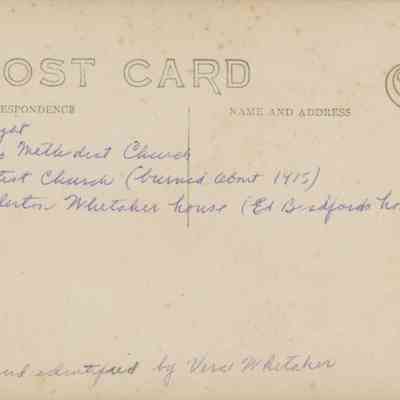 OST CARD
ESPONDENCE
NAME AND ADDRESS
ght
Methodist Church
tist Church (burned about 1915)
Whitaker house (Ed Bradfords ho
identified by Vera Whitaker